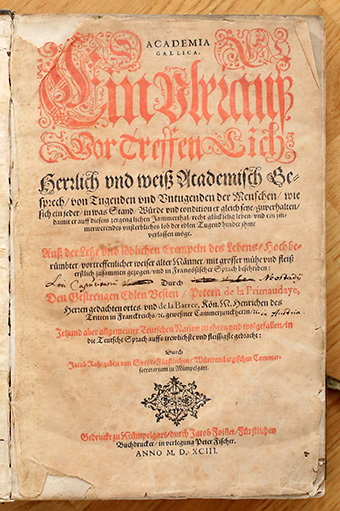 ACADEMIA
GALLICA.
Ein Vberauß
Vor Treffen Lich
Herrlich vnd weiß Academisch Ge-
sprech / von Tugenden vnd Vntugenden der Menschen / wie
sich ein jeder / in was Stand / Würde vnd condition er gleich seye / zuverhalten /
damit er auff diesem zergenglichen Jammerthal / recht glückselig leben / vnd ein im-
merwerendes vnsterbliches lob der edlen Tugend hinder ihme
verlassen möge.
Auß der Lehr vnd löblichen Exempeln des Lebens / Hoch be-
rümbter / vortreffenlicher weiser alter Männer / mit grosser mühe vnd fleiß
erstlich zusammen gezogen / vnd in Frantzösischer Sprach beschriben:
Durch
Den Gestrengen Edlen Vesten / Petern de la Primaudaye,
Herren gedachten ortes / vnd de la Barree, Kön. M. Henrichen des
Dritten in Franckreichs / &c. gewesner Cammerjunckhern / &c. in Austria.
Jetzund aber allgemeiner Teutschen Nation zu ehren vnd wolgefallen / in
die Teutsche Sprach auffs trewlichste vnd fleissigste gebracht:
Durch
Jacob Raht geben von Speyr / Fürstlichen / Würtembergischen Cammer-
secretarium zu Mümpelgart.
Gedruckt zu Mümpelgart / durch Jacob Foillet / Fürstlichen
Buchdrucker / in verlegung Peter Fischer.
ANNO M. D. XCIII.